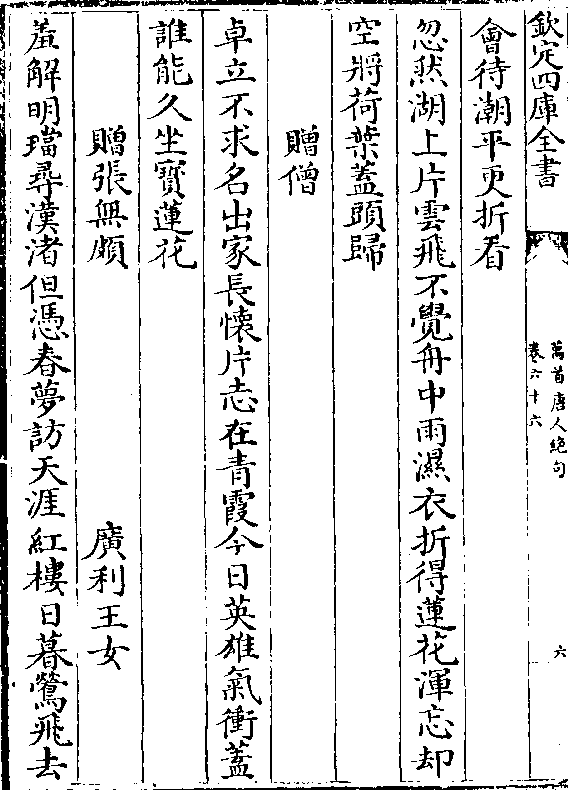 欽定四庫全書
萬首唐人絶句
卷六十六
六
會待潮平更折看
忽然湖上片雲飛不覺舟中雨濕衣折得蓮花渾忘却
空將荷葉蓋頭歸
贈僧
卓立不求名出家長懷片志在青霞今日英雄氣衝蓋
誰能久坐寳蓮花
贈張無頗
廣利王女
羞解明璫尋漢渚但憑春夢訪天涯紅樓日暮鶯飛去